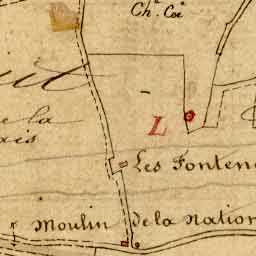 Ch.ᵃᵘ Coi
de la
ais
L
Les Fonten
Moulin de la Nation